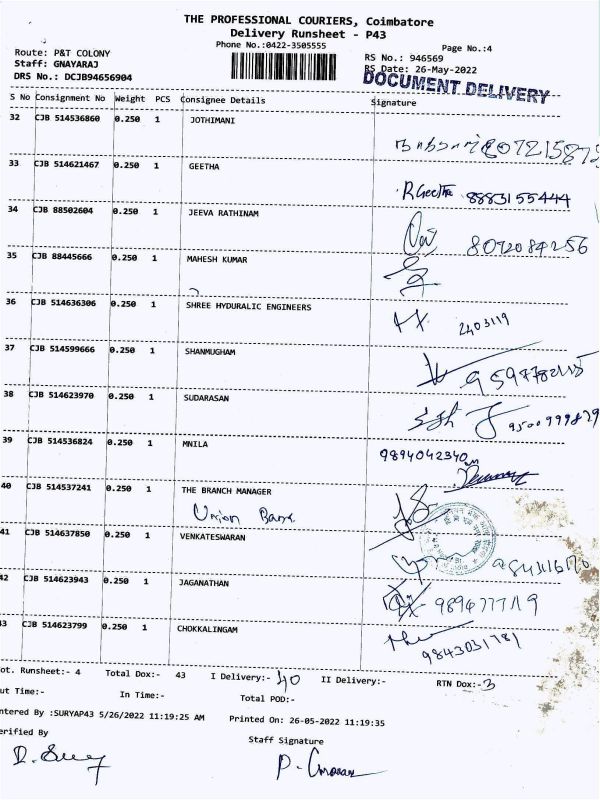 THE PROFESSIONAL COURIERS, Coimbatore
Delivery Runsheet - P43
Phone No.:0422-3505555
Page No.:4
Route: P&T COLONY
Staff: GNAYARAJ
DRS No.: DCJB94656904
RS No.: 946569
RS Date: 26-May-2022
DOCUMENT DELIVERY
S No Consignment No Weight PCS Consignee Details Signature
32 CJB 514536860 0.250 1 JOTHIMANI
33 CJB 514621467 0.250 1 GEETHA
R Geetha 8883155444
34 CJB 88502604 0.250 1 JEEVA RATHINAM
8072084256
35 CJB 88445666 0.250 1 MAHESH KUMAR
36 CJB 514636306 0.250 1 SHREE HYDURALIC ENGINEERS
2403119
37 CJB 514599666 0.250 1 SHANMUGHAM
38 CJB 514623970 0.250 1 SUDARASAN
9500999829
39 CJB 514536824 0.250 1 MNILA
9894042340
40 CJB 514537241 0.250 1 THE BRANCH MANAGER
Union Bank
41 CJB 514637850 0.250 1 VENKATESWARAN
42 CJB 514623943 0.250 1 JAGANATHAN
9894777719
43 CJB 514623799 0.250 1 CHOKKALINGAM
9843031781
ot. Runsheet:- 4 Total Dox:- 43 I Delivery:- 40 II Delivery:- RTN Dox:- 3
ut Time:- In Time:- Total POD:-
ntered By :SURYAP43 5/26/2022 11:19:25 AM Printed On: 26-05-2022 11:19:35
erified By Staff Signature